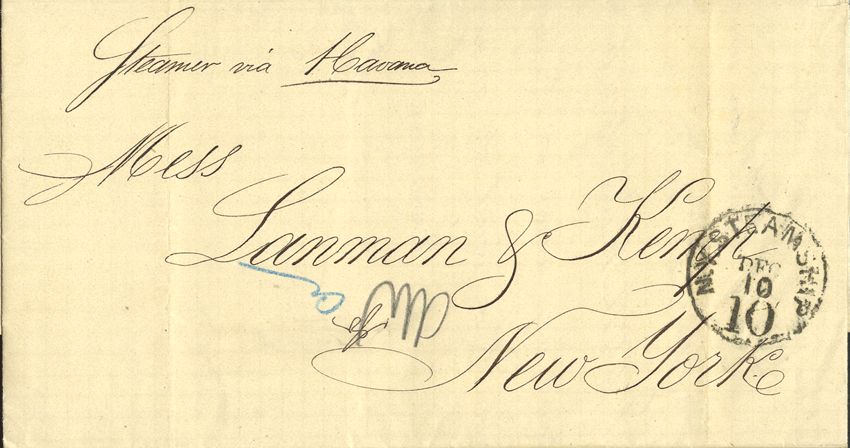 Steamer via Havana
Mess
Lanman & Kemp
N.Y. STEAMSHIP
DEC
10
10
New York.